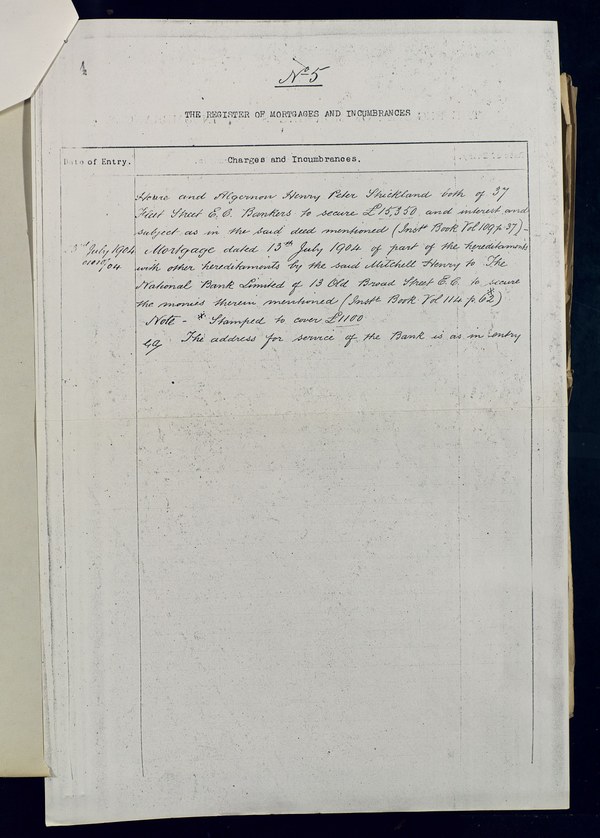 No 5
THE REGISTER OF MORTGAGES AND INCUMBRANCES
Date of Entry.
Charges and Incumbrances.
Hoare and Algernon Henry Peter Strickland both of 37
Fleet Street E.C. Bankers to secure £15,350 and interest and
subject as in the said deed mentioned (Instt Book Vol 109 p 37) -
July 1904
Mortgage dated 13th July 1904 of part of the hereditaments
/04
with other hereditaments by the said Mitchell Henry to The
National Bank Limited of 13 Old Broad Street E.C. to secure
the monies therein mentioned (Instt Book Vol 114 p 62*)
Note - * Stamped to cover £1100
The address for service of the Bank is as in entry